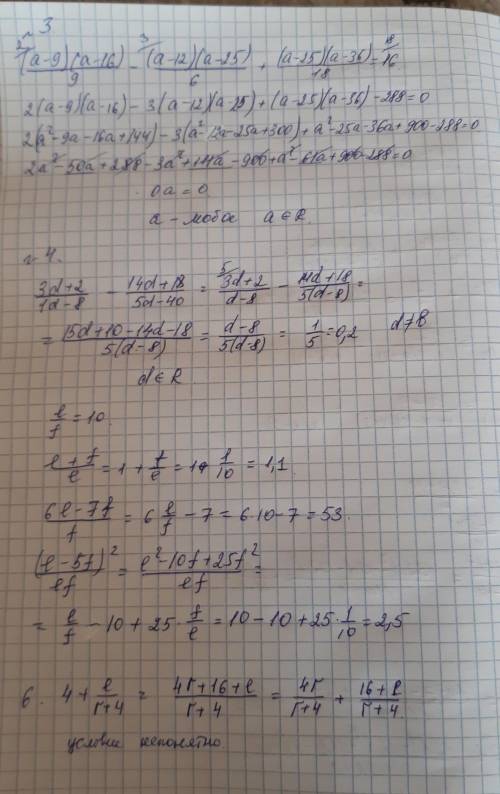 №3
²⁄(a-9)(a-16)/9 - ³⁄(a-12)(a-25)/6 + (a-25)(a-36)/18 = ¹⁸⁄16
2(a-9)(a-16) - 3(a-12)(a-25) + (a-25)(a-36) - 288 = 0
2(a²-9a-16a+144) - 3(a²-12a-25a+300) + a²-25a-36a+900-288 = 0
2a²-50a+288-3a²+111a-900+a²-61a+900-288=0
0a = 0
a - любое a ∈ R.
№4.
(3d+2)/(1d-8) - (14d+18)/(5d-40) = ⁵⁄(3d+2)/(d-8) - (14d+18)/(5(d-8)) =
= (15d+10-14d-18)/(5(d-8)) = (d-8)/(5(d-8)) = 1/5 = 0,2 d≠8
d ∈ R.
l/f = 10.
(l+f)/l = 1 + f/l = 1+ 1/10 = 1,1
(6l-7f)/f = 6 l/f - 7 = 6·10-7 = 53.
(l-5f)²/lf = (l²-10f+25f²)/lf =
= l/f - 10 + 25 · f/l = 10 - 10 + 25 · 1/10 = 2,5
6. 4 + l/(r+4) = (4r+16+l)/(r+4) = 4r/(r+4) + (16+l)/(r+4)
условие непонятно.